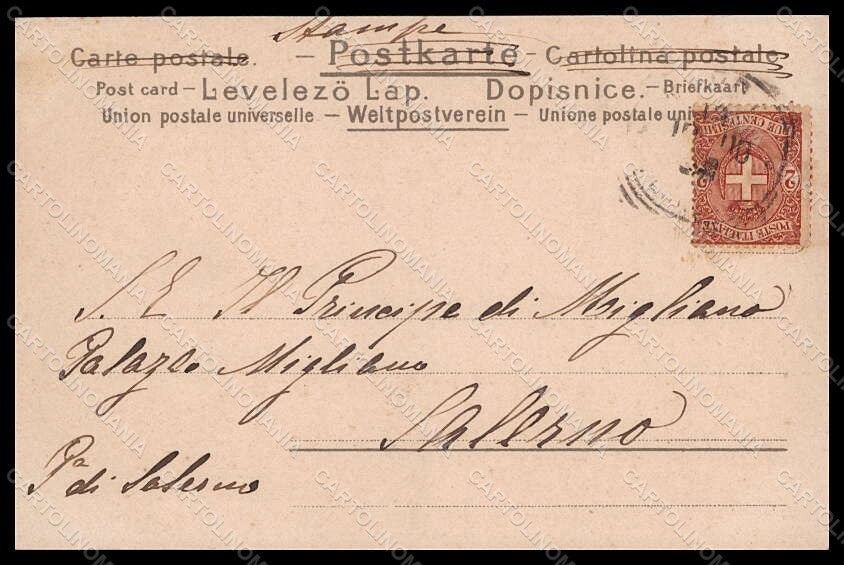 Stampe
Carte postale. – Postkarte – Cartolina postale
Post card – Levelező Lap. Dopisnice. – Briefkaart
Union postale universelle – Weltpostverein – Unione postale uni
DUE CENTESIMI
2 2
POSTE ITALIANE
S. E. Il Principe di Migliano
Palazzo Migliano
Salerno
Pª di Salerno
CARTOLINOMANIA